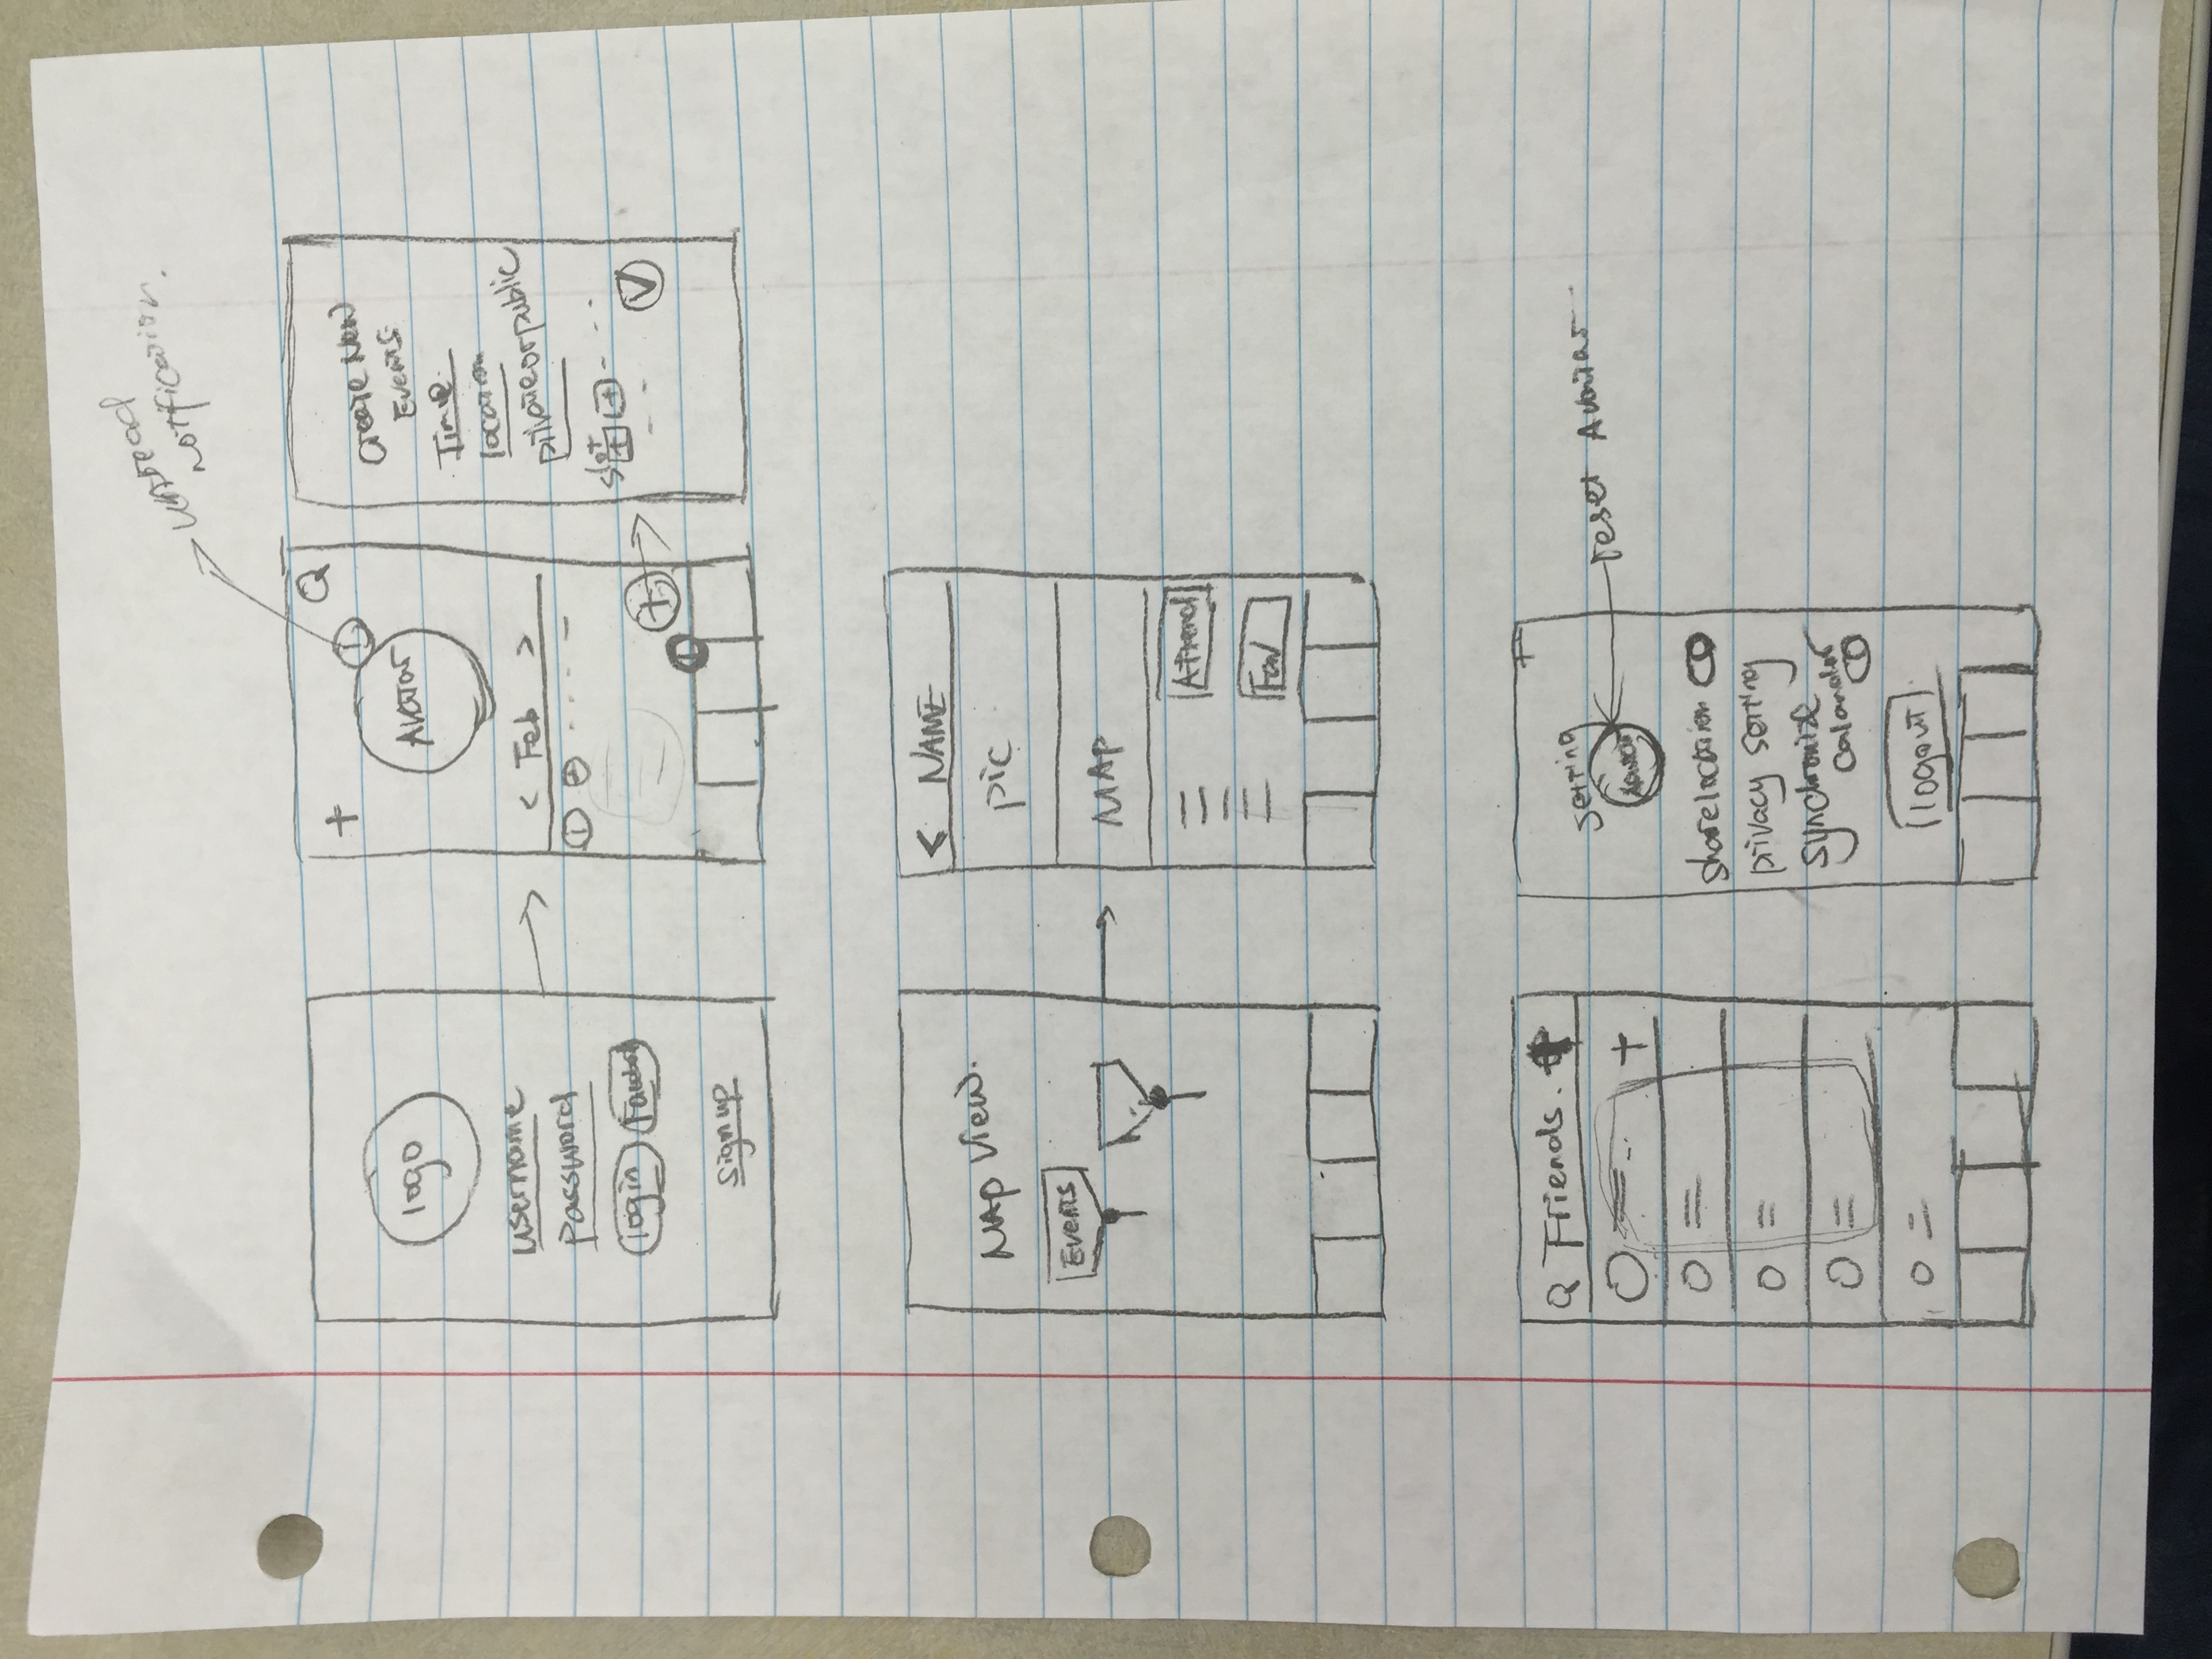 unread
notification.
logo
username
password
login Facebook
sign up
+ Q
1
Avatar
< Feb >
1 2 - - - -
+
1
Create New
Events
Time
location
private or public
slot
+ + - - -
- -
MAP View.
Events
< NAME
pic
MAP
Attend
Fav
Q Friends. +
+
Setting
Avatar
reset Avatar
share location
privacy setting
synchronize
Calandar
logout